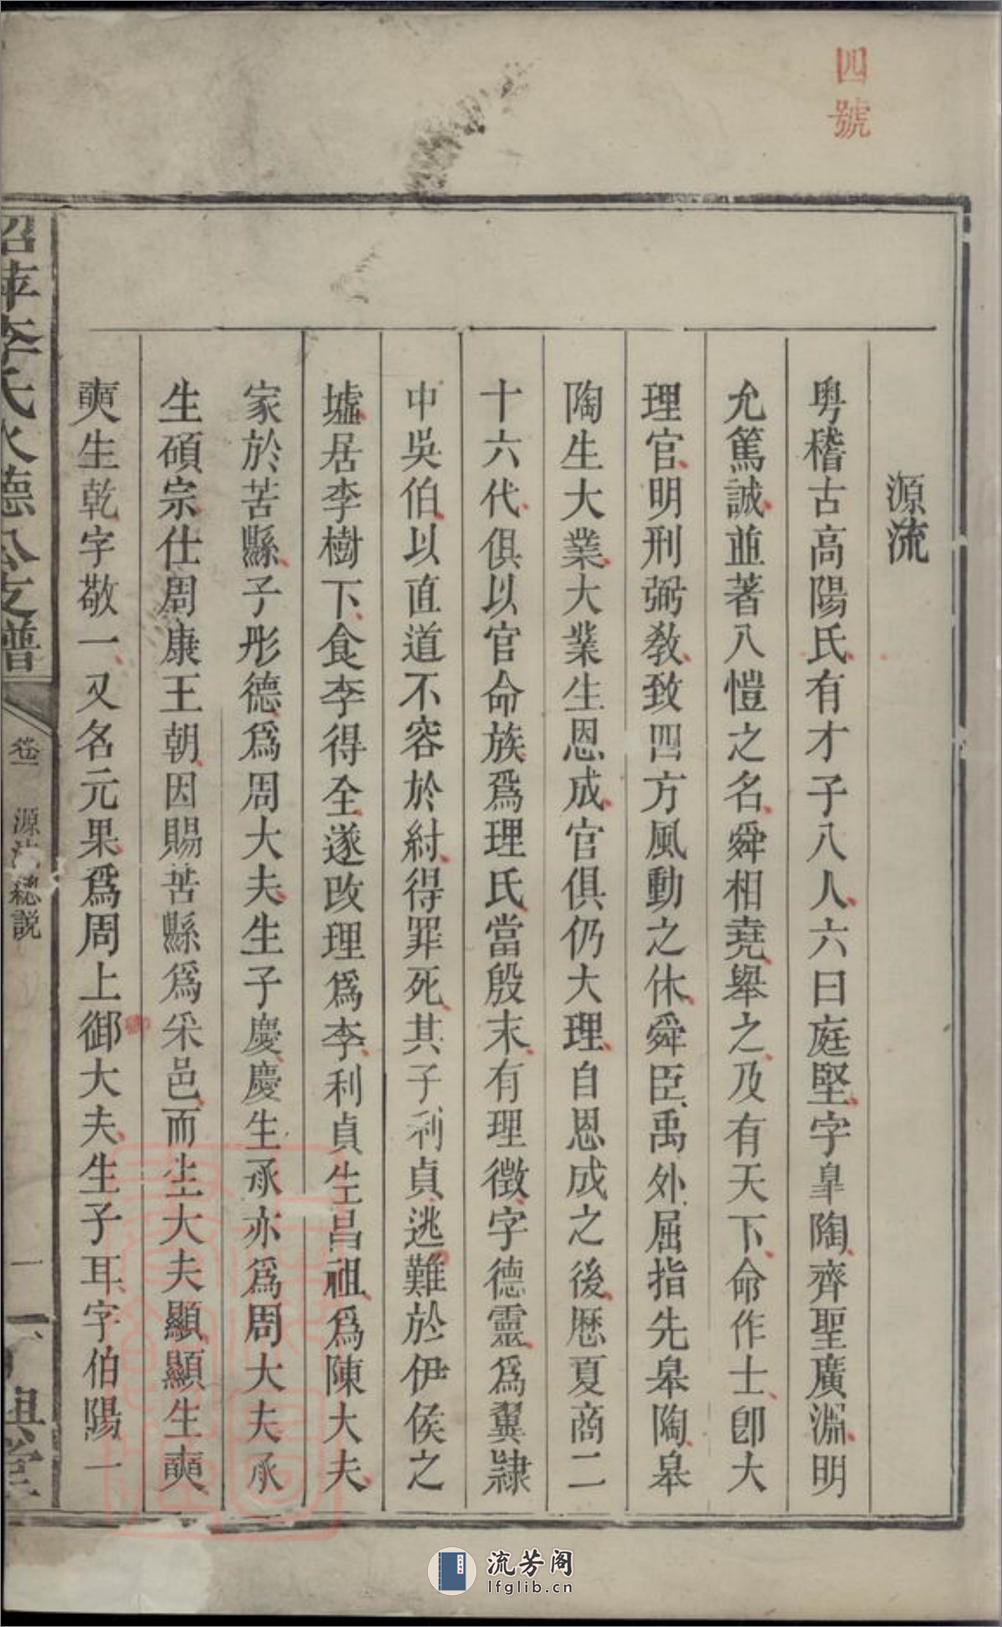 四號
源流
粤稽古高陽氏有才子八人六曰庭堅字臯陶齊聖廣淵明
允篤誠並著八愷之名舜相堯舉之及有天下命作士卽大
理官明刑弼敎致四方風動之休舜臣禹外屈指先皋陶皋
陶生大業大業生恩成官俱仍大理自恩成之後厯夏商二
十六代俱以官命族爲理氏當殷末有理徵字德靈爲翼隸
中吳伯以直道不容於紂得罪死其子利貞逃難於伊侯之
墟居李樹下食李得全遂改理爲李利貞生昌祖爲陳大夫
家於苦縣子彤德爲周大夫生子慶慶生承亦爲周大夫承
生碩宗仕周康王朝因賜苦縣爲采邑而生大夫顯顯生奭
奭生乾字敬一又名元果爲周上御大夫生子耳字伯陽一
李氏永德公支譜
卷一
源流總說
一
流芳阁
lfglib.cn